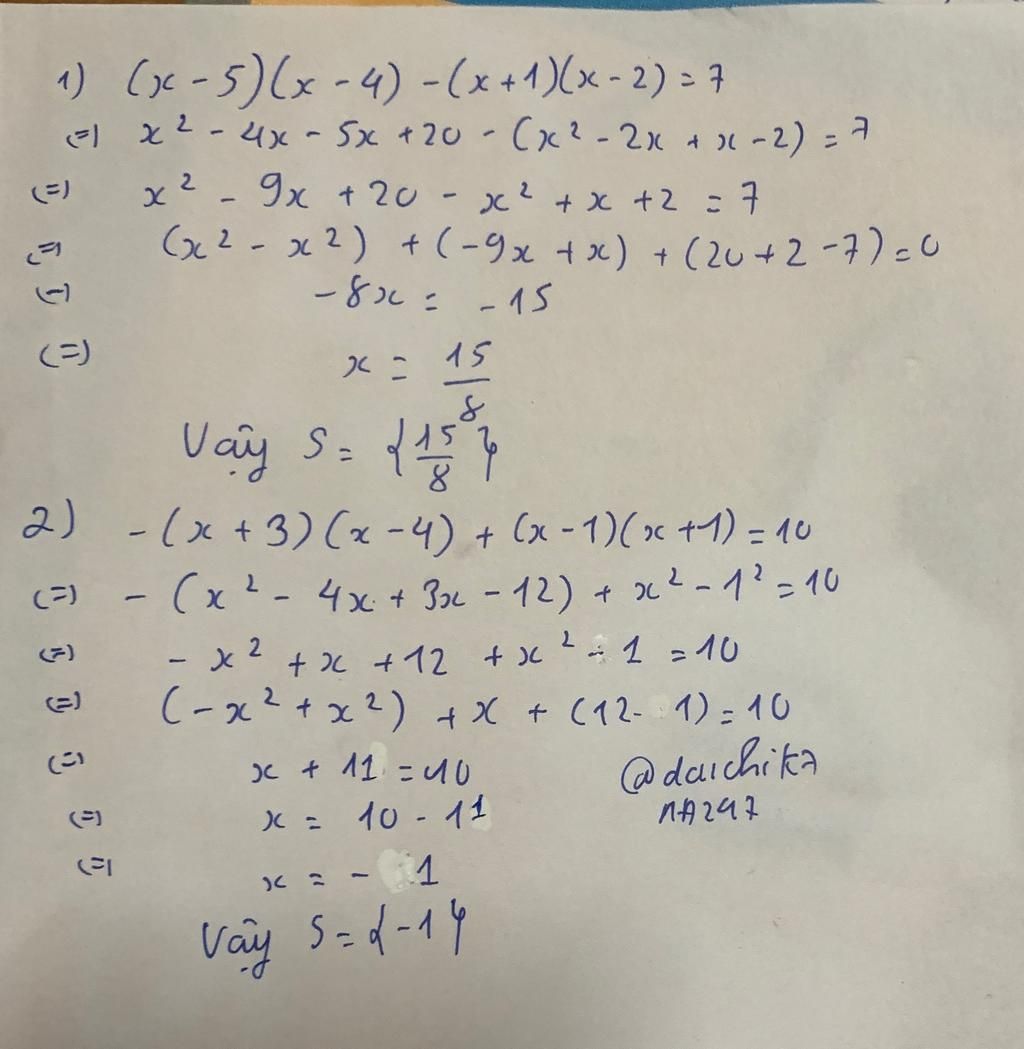 1) (x - 5)(x - 4) - (x + 1)(x - 2) = 7
(=) x² - 4x - 5x + 20 - (x² - 2x + x - 2) = 7
(=) x² - 9x + 20 - x² + x + 2 = 7
(=) (x² - x²) + (-9x + x) + (20 + 2 - 7) = 0
(=) -8x = -15
(=) x = 15/8
Vậy S = {15/8}
2) -(x + 3)(x - 4) + (x - 1)(x + 1) = 10
(=) - (x² - 4x + 3x - 12) + x² - 1² = 10
(=) - x² + x + 12 + x² - 1 = 10
(=) (-x² + x²) + x + (12 - 1) = 10
(=) x + 11 = 10
@daichika
(=) x = 10 - 11
NA247
(=) x = - 1
Vậy S = {-1}